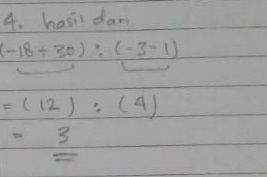 4. hasil dari
(-18+30) : (-3-1)
= (12) : (4)
= 3